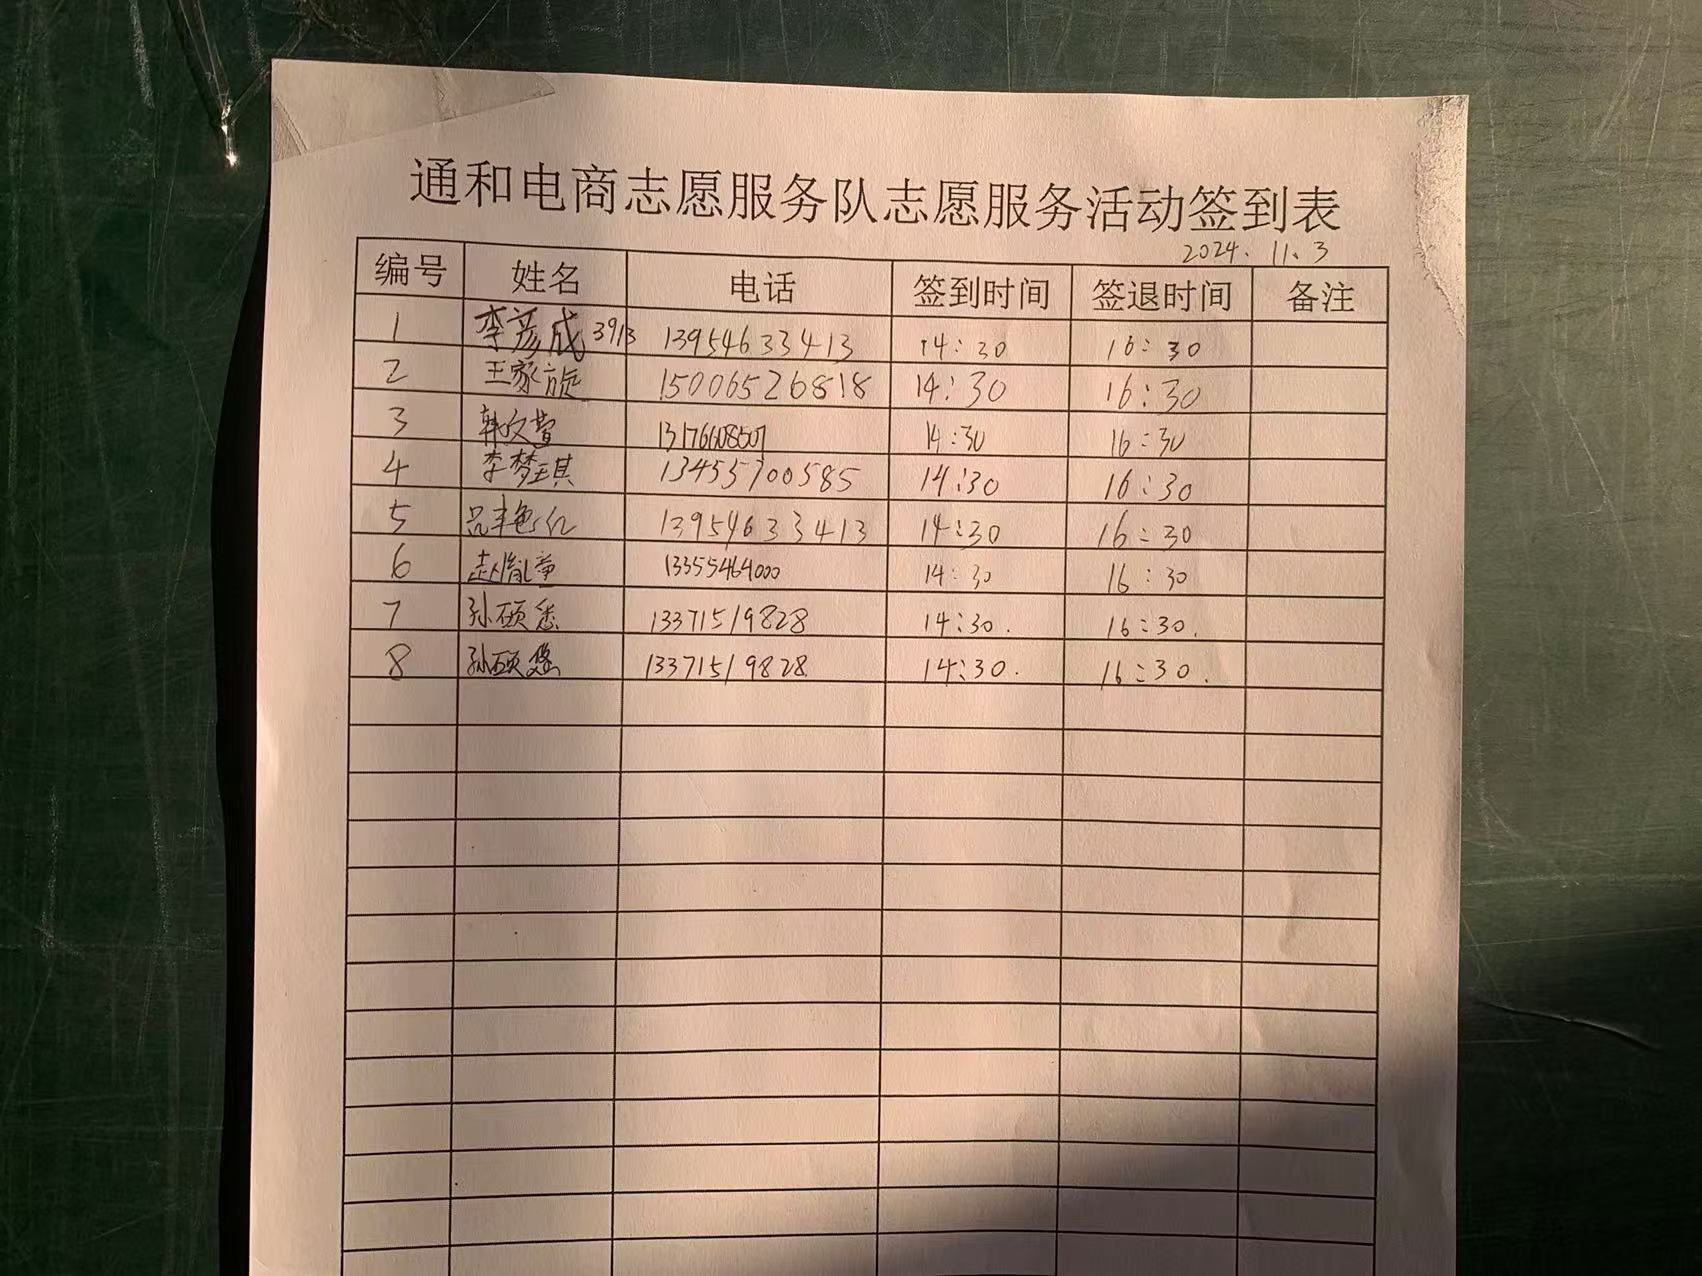 通和电商志愿服务队志愿服务活动签到表
2024.11.3
编号 姓名 电话 签到时间 签退时间 备注
1 李彦成 3913 13954633413 14:30 16:30
2 王家旋 15006526818 14:30 16:30
3 韩欣萱 13176608507 14:30 16:30
4 李梦琪 13455700585 14:30 16:30
5 13954633413 14:30 16:30
6 赵胤童 13355464000 14:30 16:30
7 孙硕悉 13371519828 14:30. 16:30.
8 孙硕悠 13371519828. 14:30. 16:30.